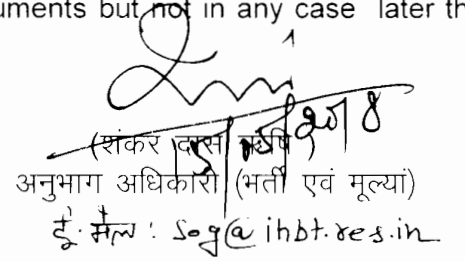 uments but not in any case later th
(शंकर दास
अनुभाग अधिकारी (भर्ती एवं मूल्यां)
ई. मेल : sog@ihbt.res.in